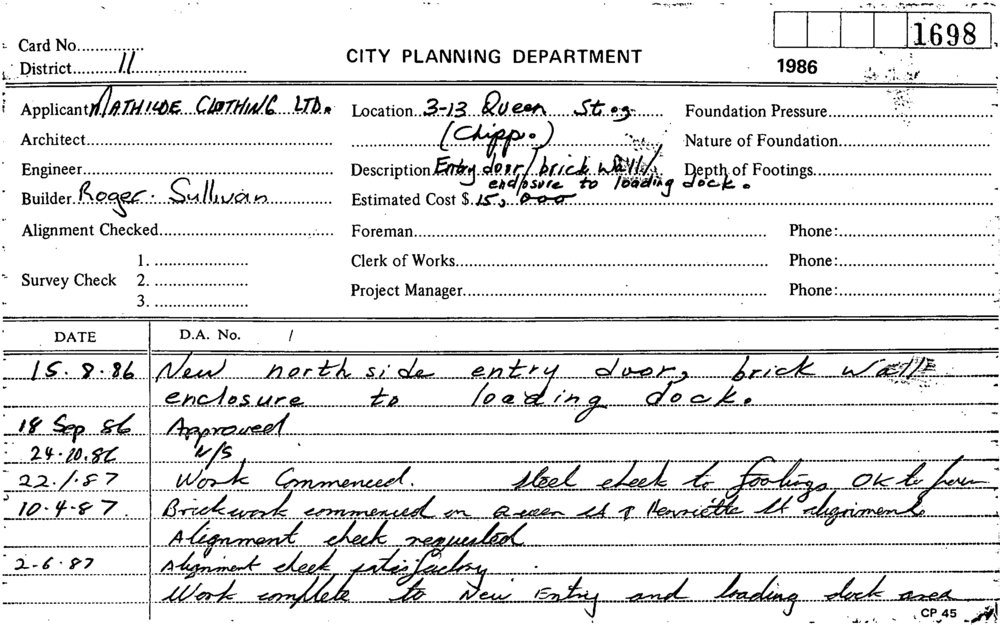 1698
Card No...............
CITY PLANNING DEPARTMENT
District.........11.......................
1986
Applicant MATHILDE CLOTHING LTD.
Location...3-13 Queen St.
Foundation Pressure
Architect
(Chipp.)
Nature of Foundation
Engineer
Description Entry door/brick wall/
Depth of Footings
enclosure to loading dock.
Builder Roger Sullivan
Estimated Cost $.15,000
Alignment Checked
Foreman
Phone:
1.
Clerk of Works
Phone:
Survey Check 2.
Project Manager
Phone:
3.
DATE
D.A. No. /
15.8.86 New north side entry door, brick wall
enclosure to loading dock.
18 Sep 86 Approved
24.10.86 N/S
22.1.87 Work Commenced. Steel check to footings OK to pour
10.4.87. Brickwork commenced on Queen St & Henrietta St alignments.
Alignment check requested
2-6-87 Alignment check satisfactory.
Work complete to New Entry and loading dock area
CP 45